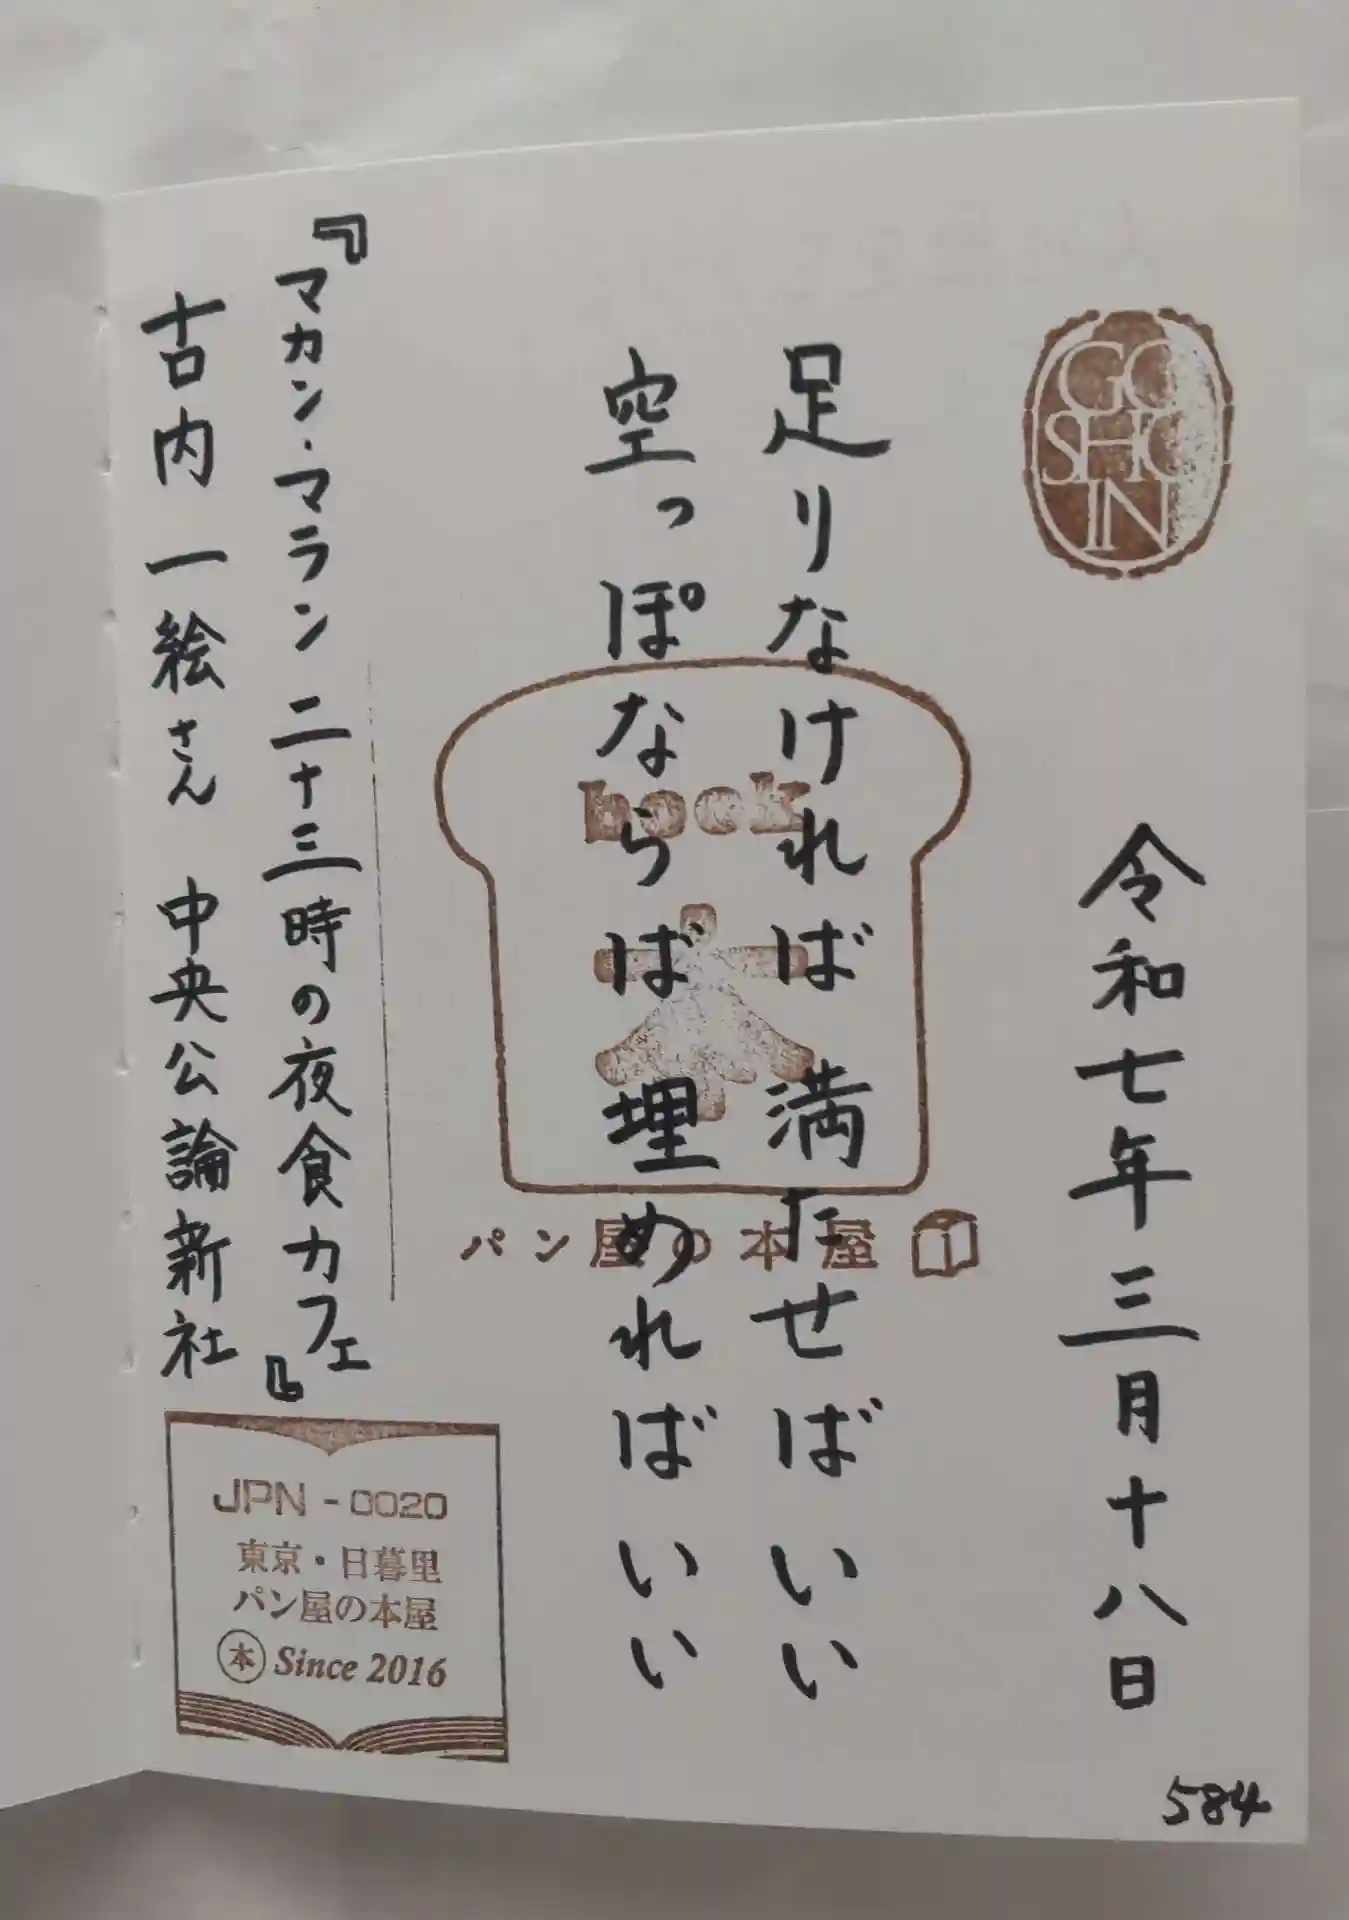 GO
SHO
IN
令和七年三月十八日
足りなければ満たせばいい
空っぽならば埋めればいい
book
パン屋の本屋
『マカン・マラン 二十三時の夜食カフェ』
古内一絵さん 中央公論新社
JPN-0020
東京・日暮里
パン屋の本屋
本 Since 2016
584